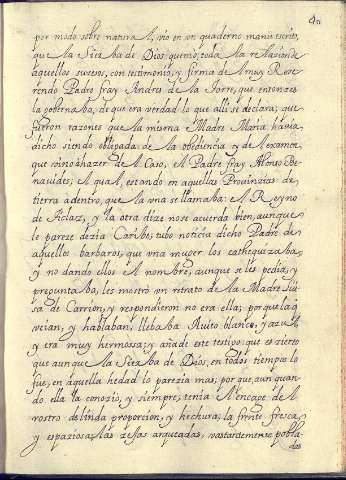 40
por modo sobre natural, vio en vn quaderno manu escrito,
que la Sierba de Dios quemó, toda la relacion de
aquellos sucesos, con testimonio, y firma del muy Reve
rendo Padre fray Andres de la Torre, que entonzes
la gobernaba, de que era verdad lo que alli se declara; que
fueron razones que la mesma Madre Maria havia
dicho siendo obligada de la obediencia y del examen
que vino á hazer del Caso, el Padre fray Alonso Be
navides, el qual, estando en aquellas Prouinzias de
tierra adentro, que la vna se llamaba el Reyno
de Ticlas, y la otra dize no se acuerda bien, aunque
le pareze dezia Caribe, tubo noticia dicho Padre de
aquellos barbaros, que vna muger los cathequizaba,
y no dando ellos el nombre, aunque se les pedia, y
preguntaba, les mostró vn retrato de la Madre Lui
sa de Carrion, y respondieron no era ella; porque la q
veian, y hablaban, llebaba Auito blanco, y azul,
y era muy hermosa; y añade este testigo, que es zierto
que aunque la Sierba de Dios, en todos tiempos lo
fue, en aquella hedad lo parezia mas, por que aun quan
do ella la conozio, y siempre, tenia el encaje del
rostro de linda proporcion, y hechura, la frente fresca,
y espaziosa, las zejas arqueadas, vastantemente pobla
das